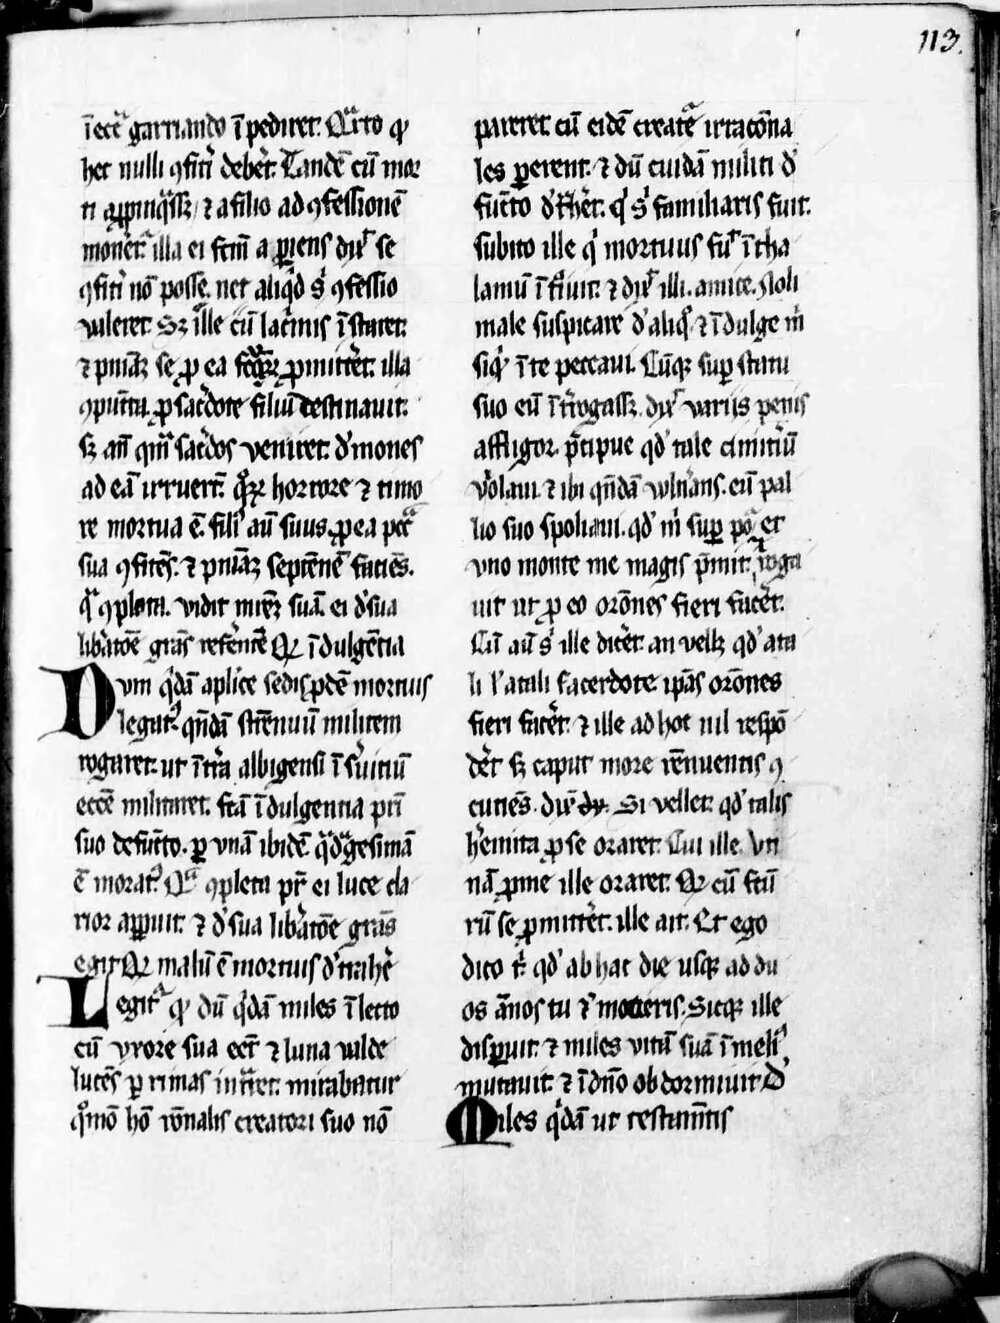 113.
ī ecc̄a garriando īpediret. Q̄rto ꝙ
hec nulli ꝯfiteri deberet. Tandē cū mor
ti aꝓpinq̄ssꝫ ⁊ a filio ad ꝯfessionē
monet᷒ illa ei fcm̄ apiens dix̄ se
ꝯfiteri nō posse. nec aliqͥd sͥ ꝯfessio
valeret. Sꝫ ille cū lac̄mis īstaret.
⁊ pniāꝫ se ꝓ ea ꝓmitteret. illa
ꝯpūcta. ꝓ sac̄dote filiū destinauit.
sꝫ an̄ qm̄ sac̄dos veniret. demones
ad eā irruerūt. horrore ⁊ timo
re mortua ē. filiꝰ aū suus ꝓ ea pcc̄a
sua ꝯfitēs. ⁊ pniāꝫ septēnē faciēs.
qͣ ꝯpleta. vidit mrēꝫ suā. ei de sua
liberatōe grās referētē. indulgētia
Dvm qͥdā aplice sedis mortuis
legatꝰ qn̄dā strēnuū militem
rogaret. ut ī terra albigensi ī ẜuitiū
eccē militaret. fcā īdulgentia pri
suo defūcto. ꝑ vnā ibidē qͣdͣgesimā
ē moratꝰ. Qͣ ꝯpleta pr̄ ei luce cla
rior apparuit. ⁊ de sua liberatōe grās
egit. malū ē mortuis detrahere
Legitᷓ ꝙ dū qͥdā miles ī lecto
cū vxore sua eēt ⁊ luna valde
lucēs ꝑ rimas intͣret. mirabatur
qͦmō hō rōnalis creatori suo nō
pareret cū eidē creatᷓe irracōna
les parerent. ⁊ dū cuidā militi de
fūcto detͣheret. qͥ sͥ familiaris fuit.
subito ille qͥ mortuus fuͣt ī tha
lamū ītͣuit. ⁊ dix̄ illi. amice. Noli
male suspicare de aliqͦ ⁊ īdulge m̄
siqͥd ī te peccaui. Cūqꝫ suꝑ statu
suo eū īterrogassꝫ. dix̄ variis penis
affligor. p̄cipue qd̓ tale cimiteriū
violaui. ⁊ ibi qn̄dā vulnerans. eū pal
lio suo spoliaui. qd̓ m̄ suꝑ et
vno monte me magis p̄mit. roga
uit ut ꝓ eo orōnes fieri faceret.
Cū aū sͥ ille diceret. an vellꝫ qd̓ a ta
li ł a tali sacerdote ip̄as orōnes
fieri faceret. ⁊ ille ad hoc nil respō
deret sꝫ caput more rēnuentis ꝯ
cutiēs. Si vellet. qd̓ talis
heremita ꝓ se oraret. Cui ille Vti
nā ꝓ me ille oraret. cū
se ꝓmitteret. ille ait. Et ego
dico t̄ qd̓ ab hac die usqꝫ ad du
os ānos tu morieris. Sicqꝫ ille
disparuit. ⁊ miles vitā suā ī meliꝰ
mutauit. ⁊ ī dn̄o obdormiuit. D̓
Miles qͥdā ut